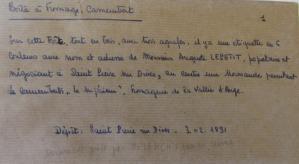 Boîte à fromage, Camembert
1
Sur cette Boîte, tout en bois, aux trois agrafes, il y a une etiquette en 6
couleurs aux nom et adresse de Monsieur Auguste LEPETIT, propriétaire et
négociant à Saint Pierre sur Dives, au centre une Normande
le camembert, "le Suprême", fromagerie de la Vallée d'Auge.
Dépôt: Saint Pierre sur Dives - 3.02.1891